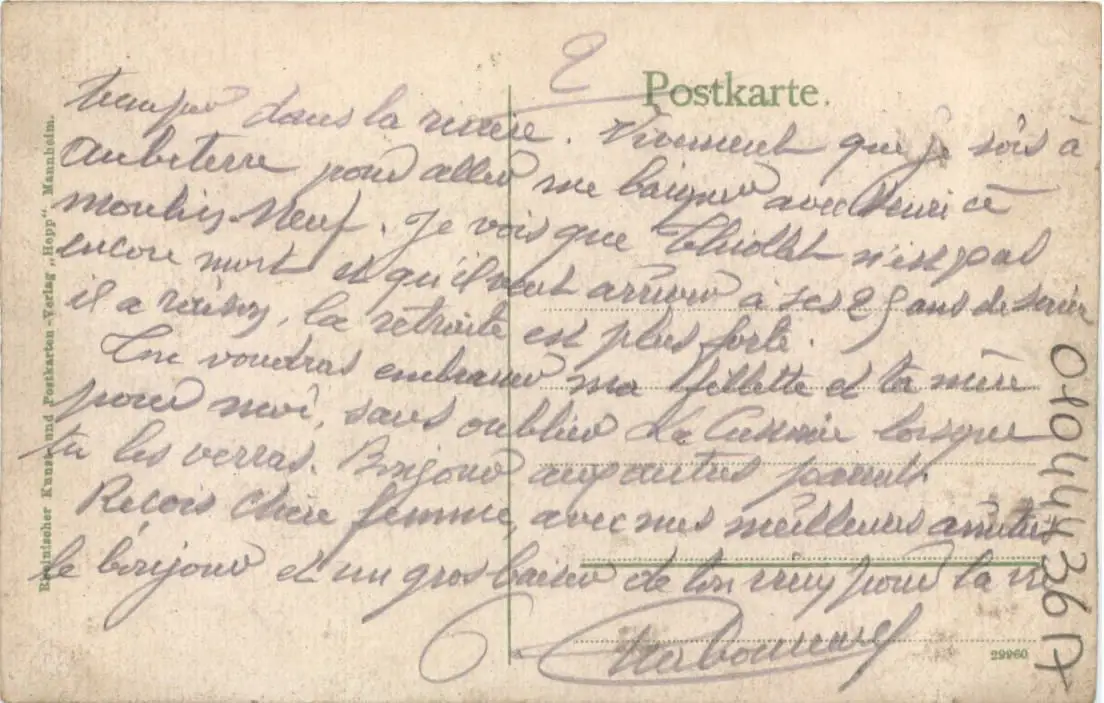 2
Postkarte.
dans la rivière. Vivement que je sois à
Aubeterre pour aller me baigner avec Henri à
moulin-Neuf. Je vois que Thiollet n'est pas
encore mort et qu'il veut arriver à ses 25 ans de service
il a raison, la retraite est plus forte.
Tu voudras embrasser ma fillette et ta mère
pour moi, sans oublier lorsque
tu les verras. Bonjour aux autres parents.
Reçois chère femme, avec mes meilleures amitiés
le bonjour et un gros baiser de ton pour la vie
Rheinischer Kunst- und Postkarten-Verlag „Hepp“, Mannheim.
29960